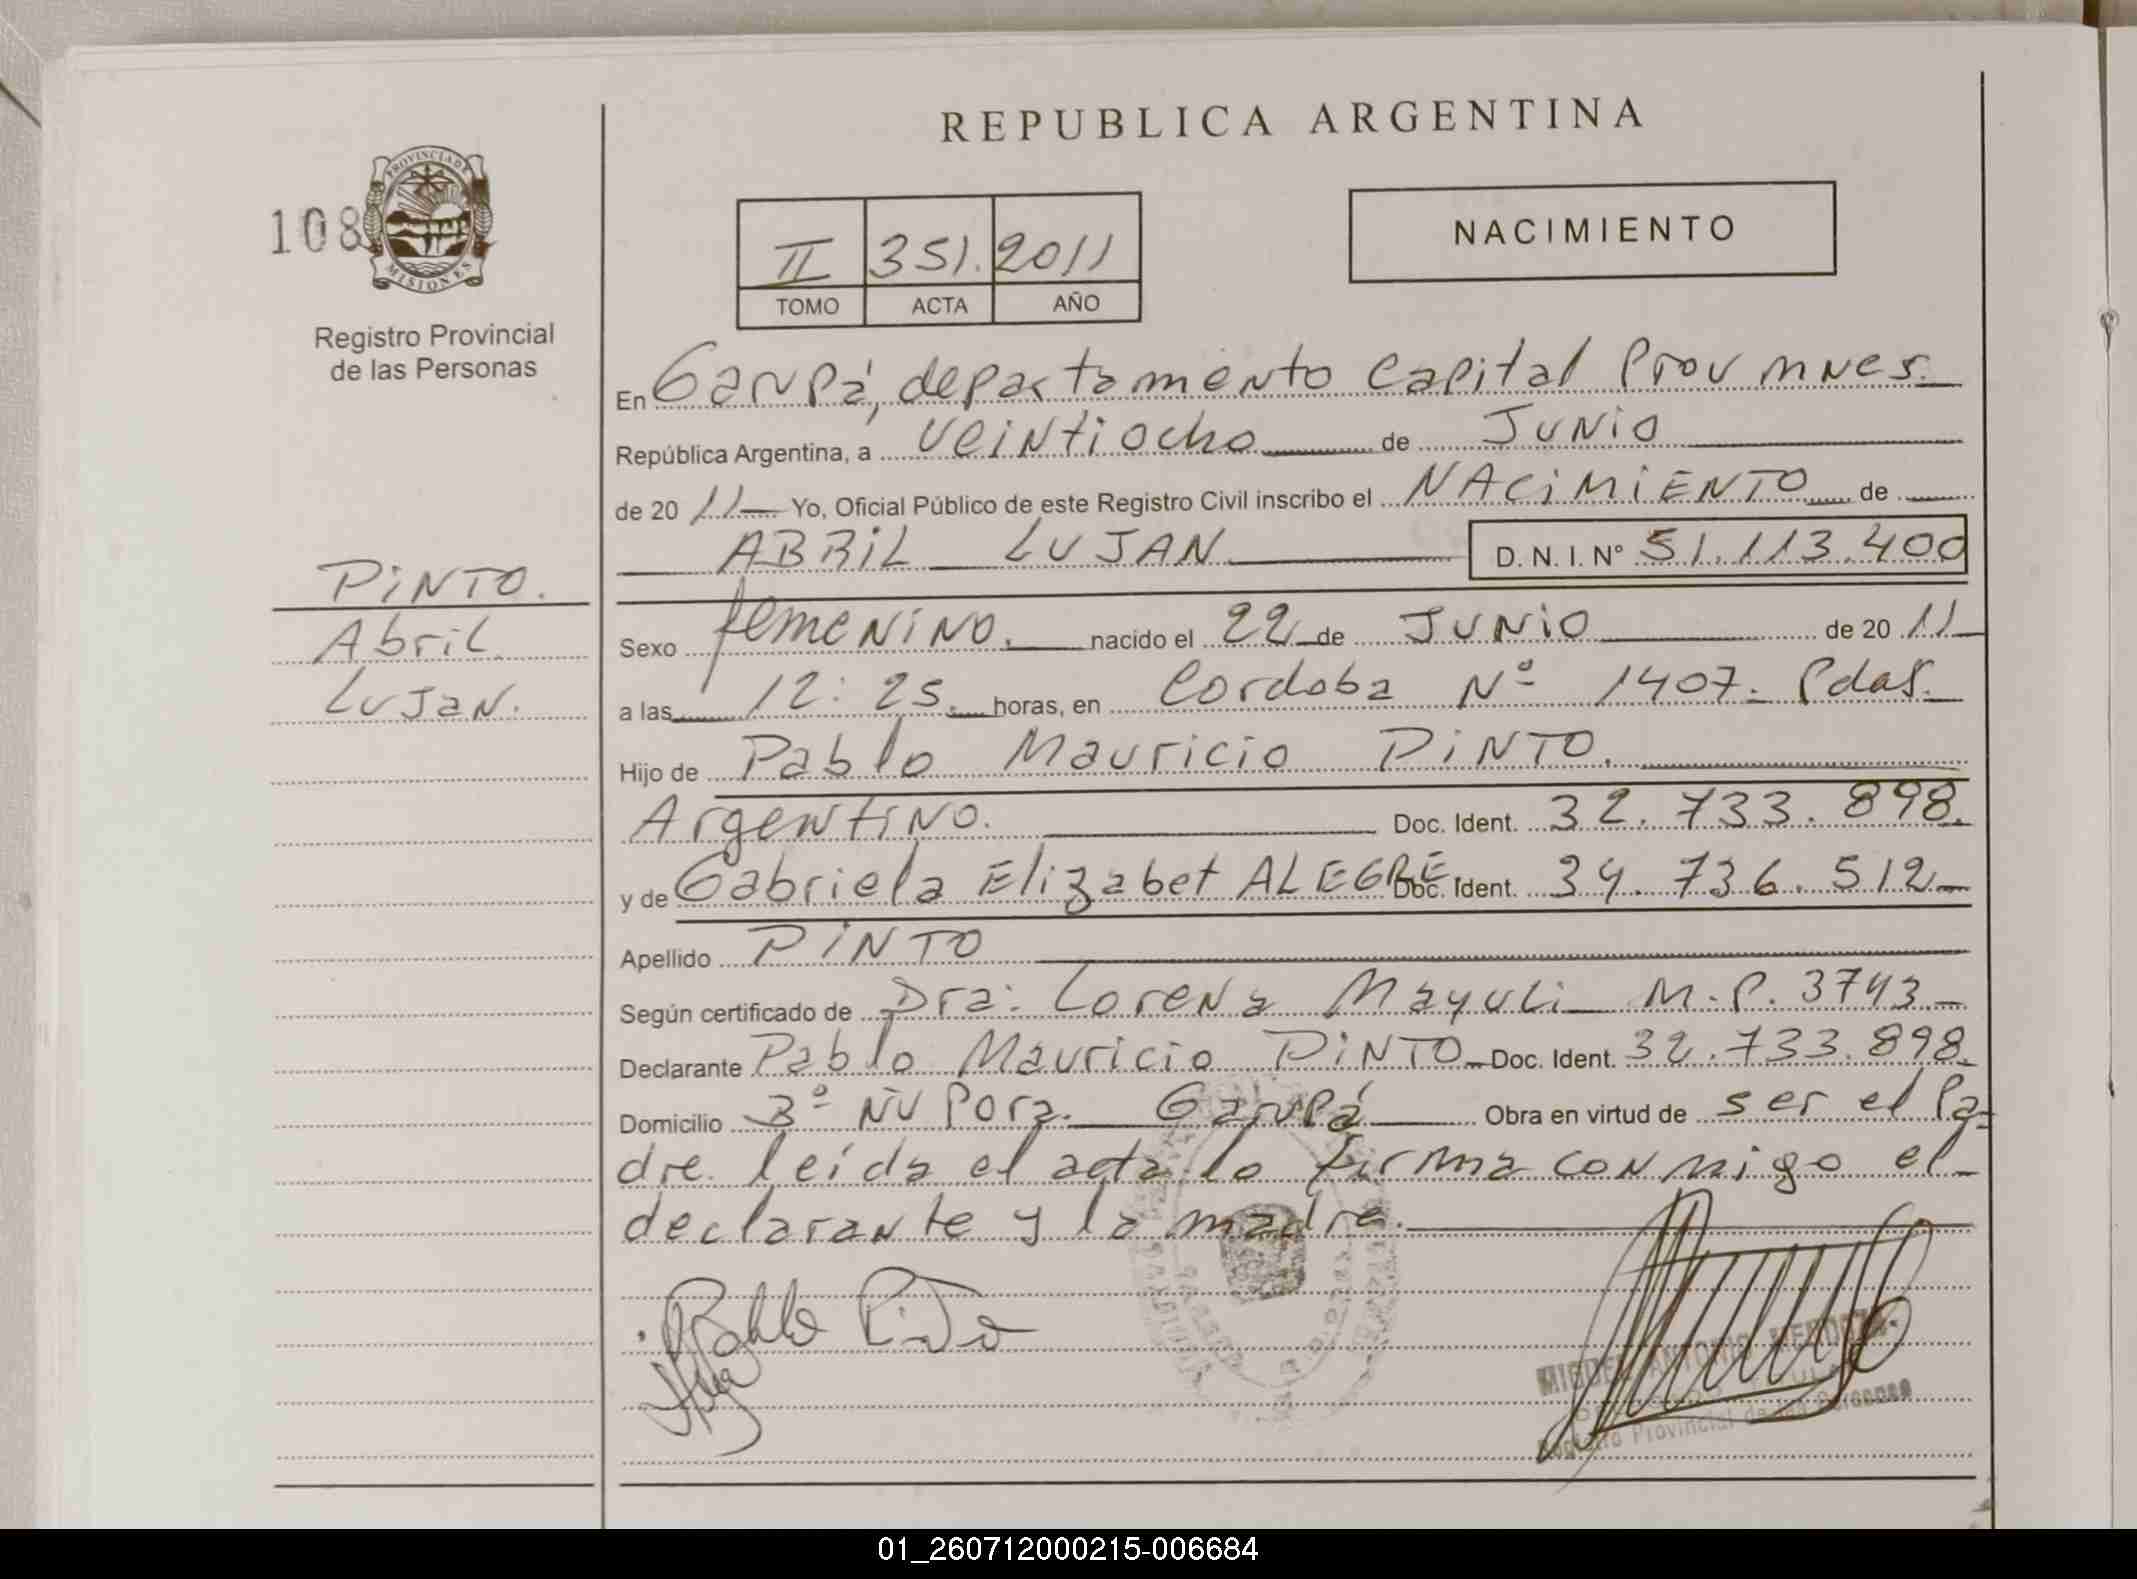 REPUBLICA ARGENTINA
108
PROVINCIA DE
MISIONES
Registro Provincial
de las Personas
II 351. 2011
TOMO ACTA AÑO
NACIMIENTO
En Garupá, departamento Capital Prov mnes.
República Argentina, a veintiocho de Junio
de 20 11 Yo, Oficial Público de este Registro Civil inscribo el NACIMIENTO de
ABRIL LUJAN D. N. I. N° 51.113.400
PINTO.
Abril
Lujan.
Sexo femenino. nacido el 22 de Junio de 20 11
a las 12:25. horas, en Cordoba Nº 1407. Pdas.
Hijo de Pablo Mauricio PINTO.
Argentino. Doc. Ident. 32.733.898.
y de Gabriela Elizabet ALEGRE. Doc. Ident. 34.736.512
Apellido PINTO
Según certificado de Dra: Lorena Mayuli M.P. 3743
Declarante Pablo Mauricio PINTO Doc. Ident. 32.733.898.
Domicilio Bº ÑU Pora. Garupá Obra en virtud de ser el Pa-
dre. leída el acta lo firma conmigo el
declarante y la madre.
Pablo Pinto
MIGUEL ANTONIO MENDOZA
Registro Provincial de las Personas
01_260712000215-006684